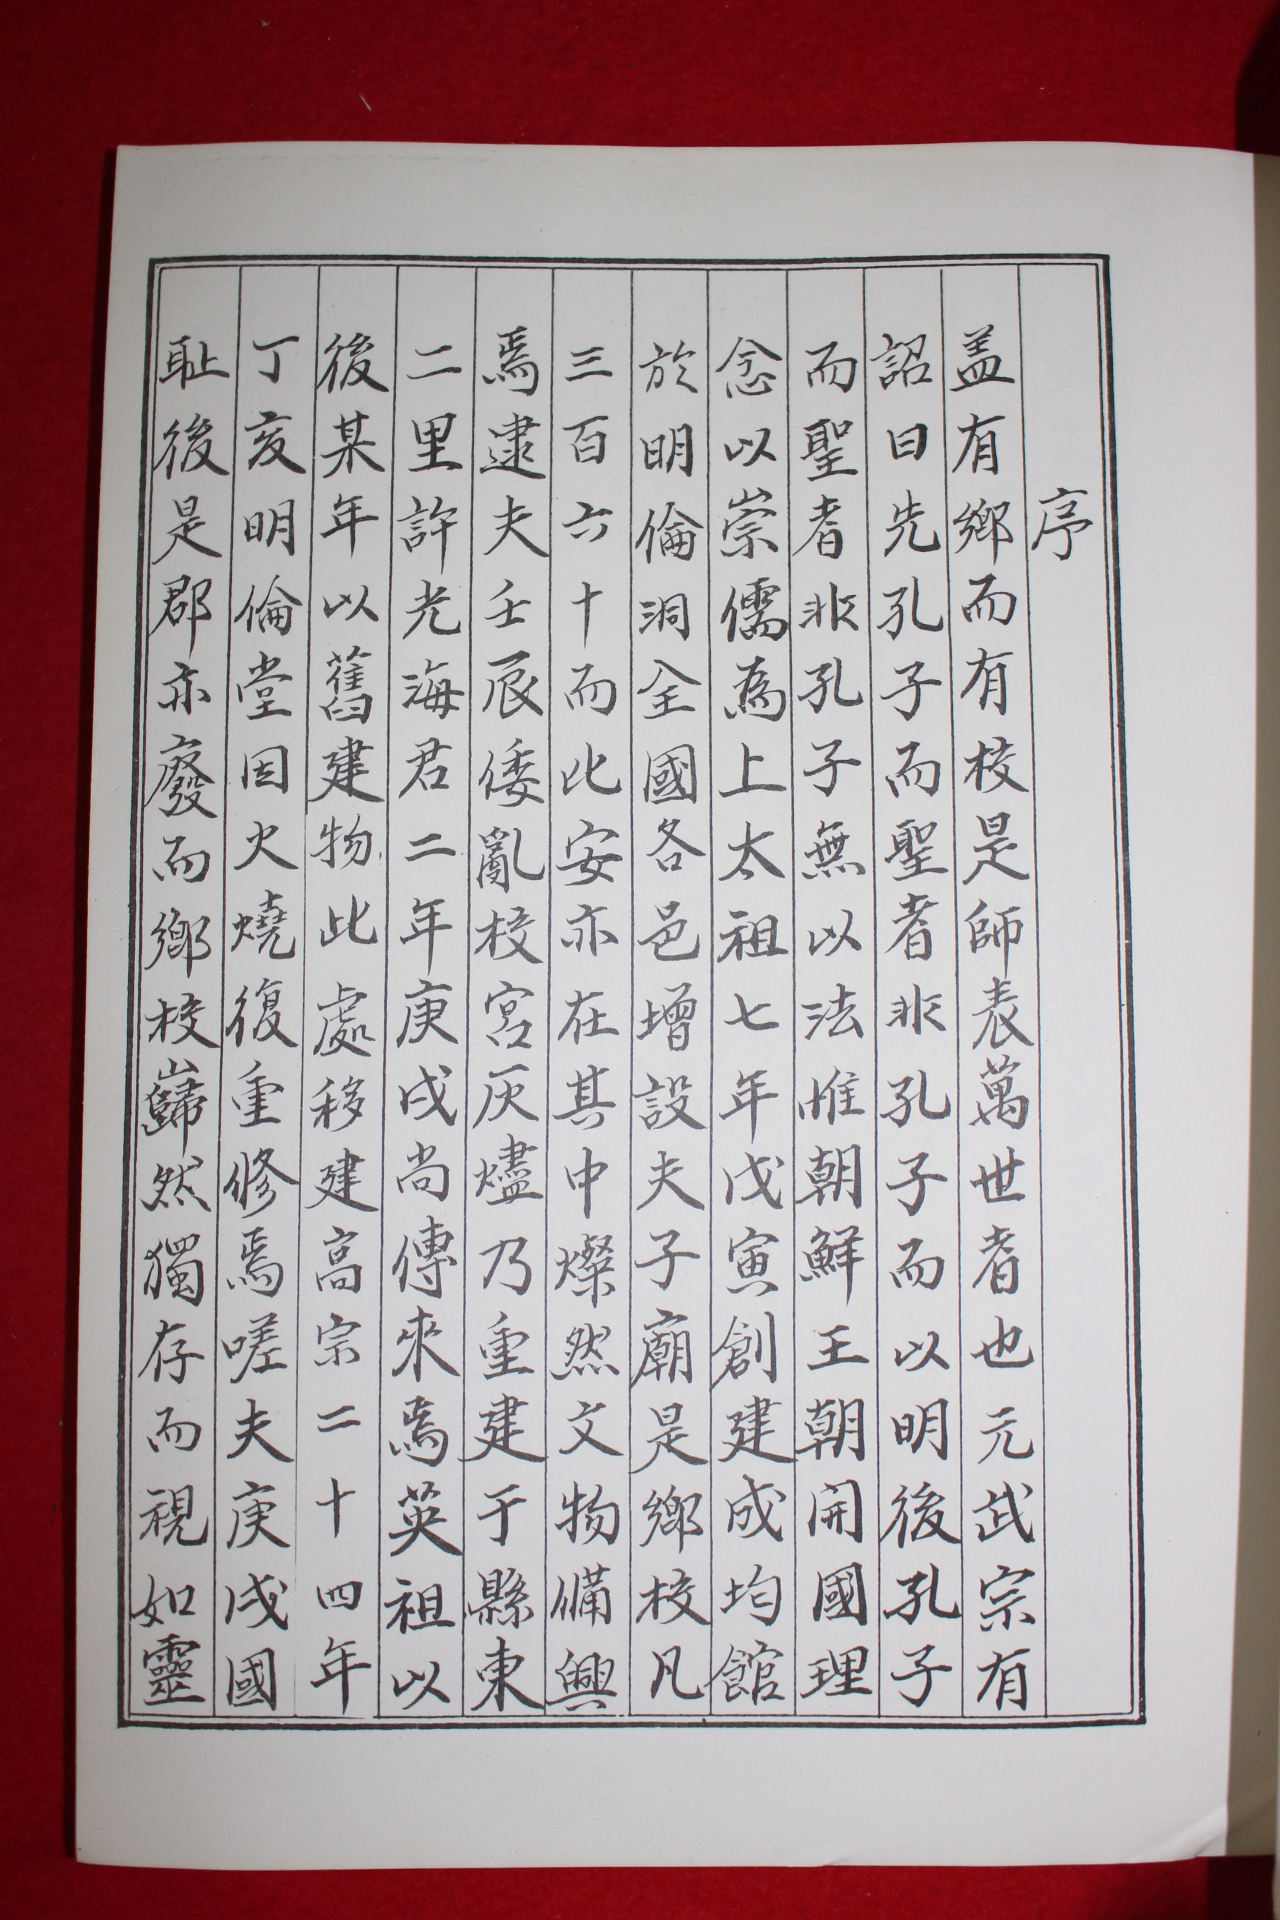 序
盖有鄉而有校是師表萬世者也元武宗有
詔曰先孔子而聖者非孔子而以明後孔子
而聖者非孔子無以法惟朝鮮王朝開國理
念以崇儒為上太祖七年戊寅創建成均館
於明倫洞全國各邑增設夫子廟是鄉校凡
三百六十而比安亦在其中燦然文物備興
焉逮夫壬辰倭亂校宮灰燼乃重建于縣東
二里許光海君二年庚戌尚傳來焉英祖以
後某年以舊建物此處移建高宗二十四年
丁亥明倫堂因火燒復重修焉嗟夫庚戌國
恥後是郡亦廢而鄉校巋然獨存而視如靈